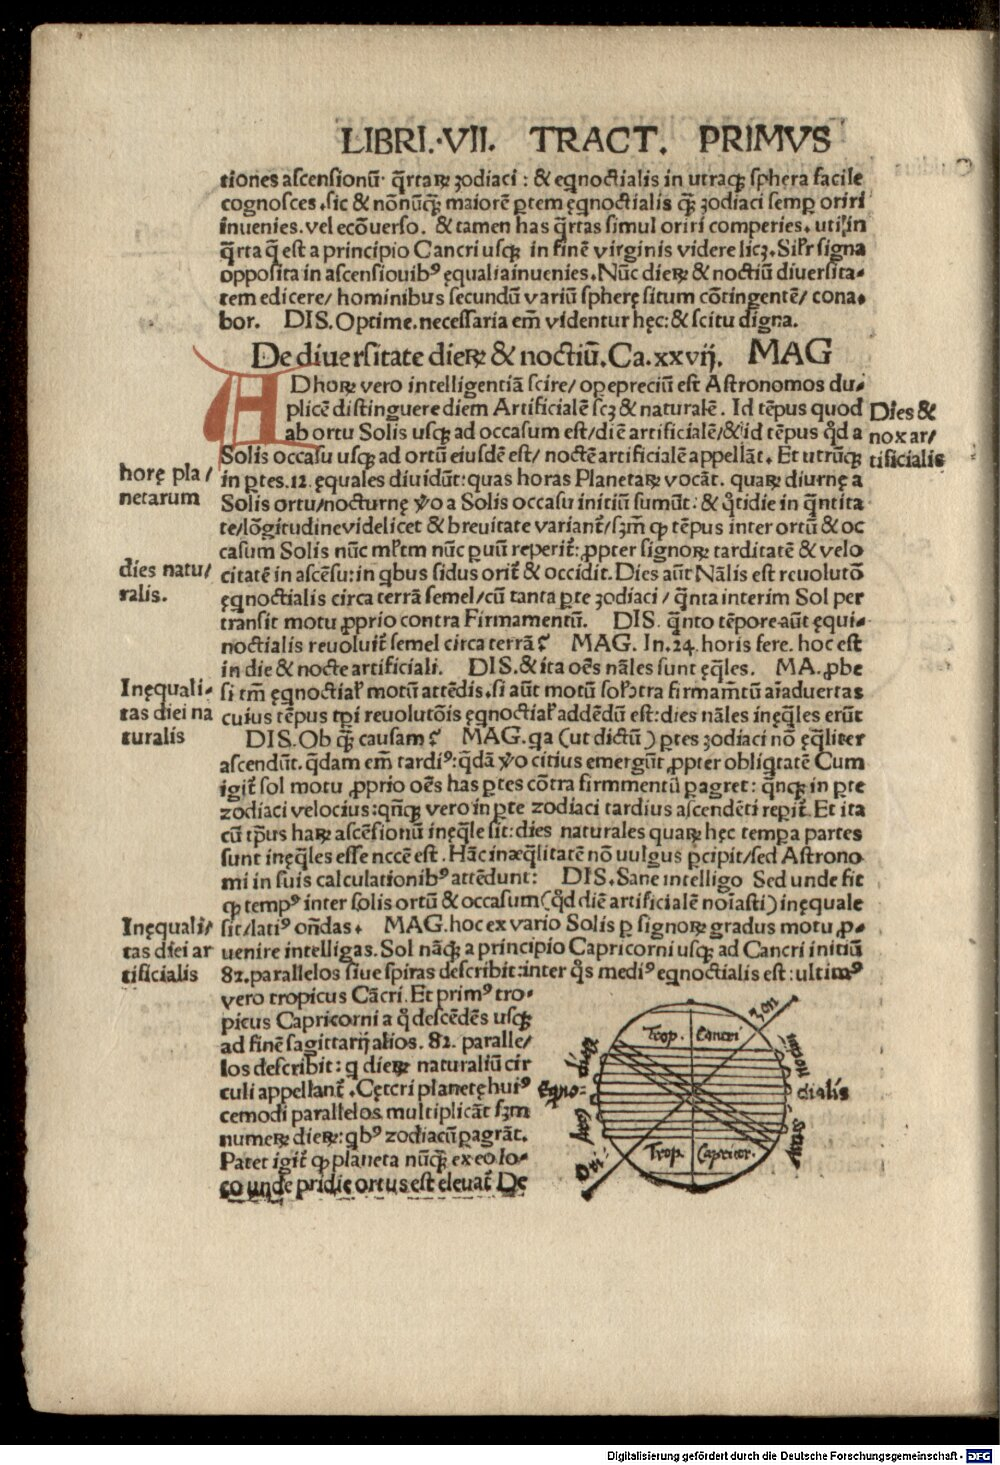 LIBRI.VII. TRACT. PRIMVS
tiones ascensionū q̄rtaꝝ zodiaci: & eqnoctialis in utraqꝫ sphera facile
cognosces. sic & nōnūqꝫ maiorē ꝑtem ęqnoctialis qꝫ zodiaci semꝑ oriri
inuenies. vel ecōuerso. & tamen has q̄rtas simul oriri comperies. uti in
q̄rta q̄ est a principio Cancri usqꝫ in finē virginis videre licꝫ. Silr signa
opposita in ascensiouibꝰ ęqualia inuenies. Nūc dieꝝ & noctiū diuersita-
tem edicere/ hominibus secundū variū spherę situm cōtingentē/ cona-
bor. DIS. Optime. necessaria em̄ videntur hęc: & scitu digna.
De diuersitate dieꝝ & noctiū. Ca. xxvij. MAG
AD horꝝ vero intelligentiā scire/ opepreciū est Astronomos du-
plicē distinguere diem Artificialē scꝫ & naturalē. Id tēpus quod
ab ortu Solis usqꝫ ad occasum est/ diē artificialē/ & id tēpus qd̄ a
Solis occasu usqꝫ ad ortū eiusdē est/ noctē artificialē appellāt. Et utrūqꝫ
in ꝑtes. 12. ęquales diuidūt: quas horas Planetaꝝ vocāt. quaꝝ diurnę a
Solis ortu/ nocturnę ꝟo a Solis occasu initiū sumūt: & qͥtidie in q̄ntita
te/ lōgitudine videlicet & breuitate variant̄/ sꝫm ꝙ tēpus inter ortū & oc
casum Solis nūc mltm nūc ꝑuū reperit̄: ꝓpter signoꝝ tarditatē & velo
citatē in ascēsu: in qbus sidus orit̄ & occidit. Dies aūt Nālis est reuolutō
ęqnoctialis circa terrā semel/ cū tanta ꝑte zodiaci/ q̄nta interim Sol per
transit motu ꝓprio contra Firmamentū. DIS. q̄nto tēpore aūt ęqui-
noctialis reuoluit̄ semel circa terrā? MAG. In. 24. horis fere. hoc est
in die & nocte artificiali. DIS. & ita oēs nāles sunt ęq̄les. MA. ꝓbe
si tm̄ ęqnoctial motū attēdis. si aūt motū sol ꝯtra firmam̄tū aīaduertas
cuius tēpus tp̄i reuolutōis ęqnoctial addēdū est: dies nāles inęq̄les erūt
DIS. Ob qꝫ causam? MAG. qa (ut dictū) ꝑtes zodiaci nō ęq̄liter
ascendūt. q̄dam em̄ tardiꝰ: q̄dā ꝟo citius emergūt ꝓpter obliqtatē Cum
igit̄ sol motu ꝓprio oēs has ꝑtes cōtra firmmentū ꝑagret: qn̄qꝫ in ꝑte
zodiaci velocius: qn̄qꝫ vero in ꝑte zodiaci tardius ascendēti reꝑit̄. Et ita
cū tp̄us haꝝ ascēsionū inęq̄le sit: dies naturales quaꝝ hęc tempa partes
sunt inęq̄les esse nccē est. Hāc inæq̄litatē nō uulgus ꝑcipit/ sed Astrono
mi in suis calculationibꝰ attēdunt: DIS. Sane intelligo Sed unde fit
ꝙ tempꝰ inter solis ortū & occasum (qd̄ diē artificialē noīasti) inęquale
sit/ latiꝰ on̄das. MAG. hoc ex vario Solis ꝑ signoꝝ gradus motu ꝓ-
uenire intelligas. Sol nāqꝫ a principio Capricorni usqꝫ ad Cancri initiū
82. parallelos siue spiras describit: inter qͦs mediꝰ eqnoctialis est: ultimꝰ
vero tropicus Cācri. Et primꝰ tro-
picus Capricorni a qͦ descēdēs usqꝫ
ad finē sagittarij alios. 82. paralle/
los describit: q dieꝝ naturaliū cir
culi appellant̄. Cęteri planetę huiꝰ
cemodi parallelos multiplicāt sꝫm
numeꝝ dieꝝ: qbꝰ zodiacū ꝑagrāt.
Patet igit̄ ꝙ planeta nūqꝫ ex eo lo-
co unde pridie ortus est eleuat̄ De
Dies &
nox ar/
tificialis
horę pla/
netarum
dies natu/
ralis.
Inęquali-
tas diei na
turalis
Inęquali/
tas diei ar
tificialis
Trop. Cancri
Zon
Eqno-
ctialis
Trop. Capricor.
Ori-